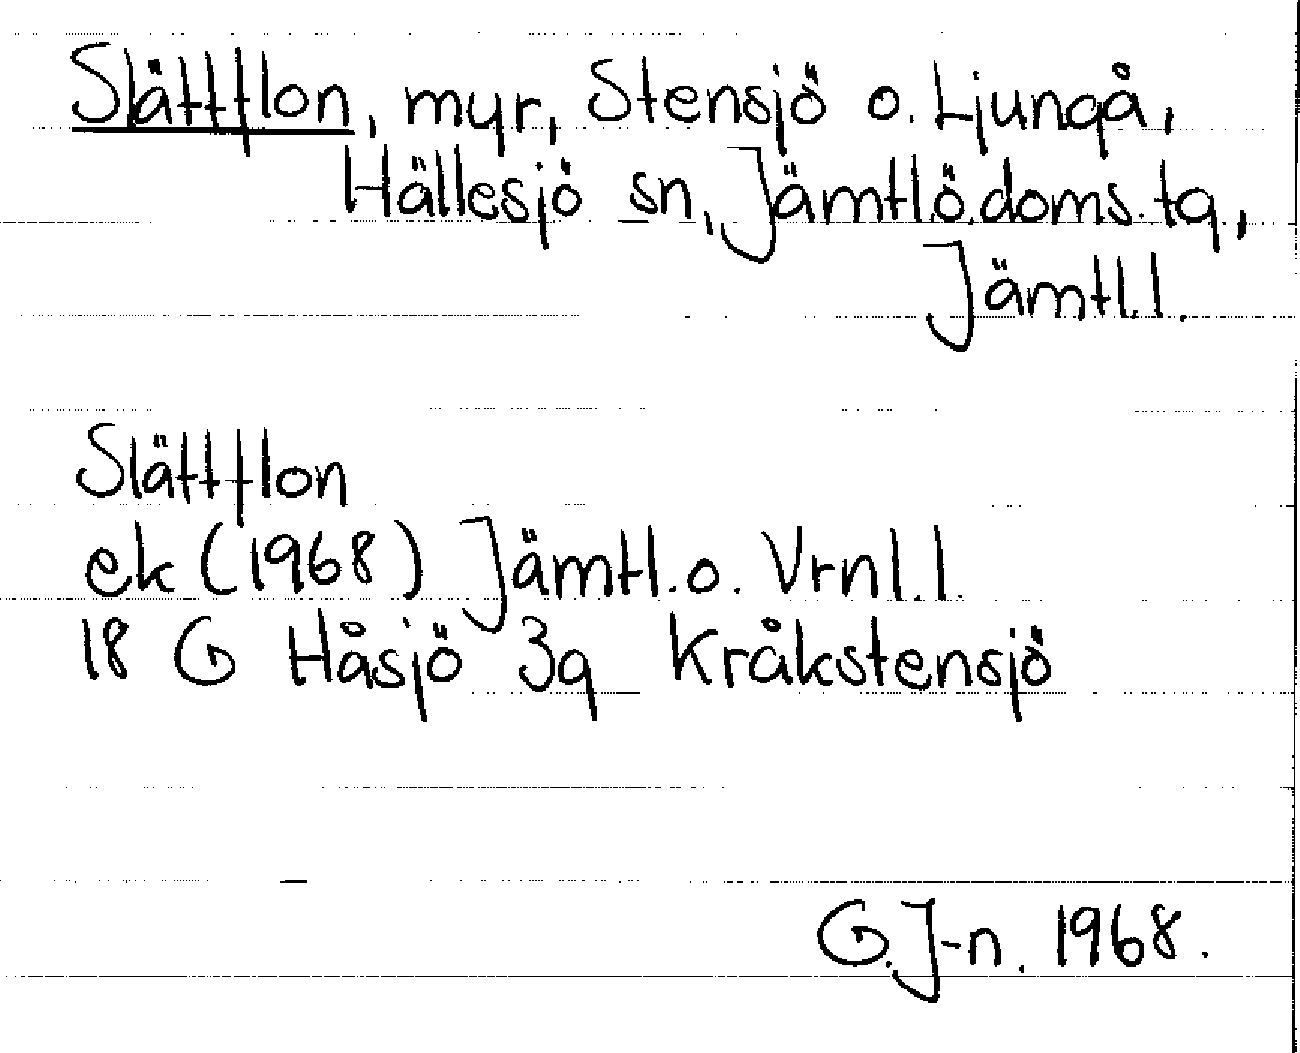 Slättflon, myr, Stensjö o. Ljungå,
Hällesjö sn, Jämtl.ö.doms.tg,
Jämtl.l.
Slättflon
ek (1968) Jämtl.o. Vrnl.l.
18 G Håsjö 3g Kråkstensjö
G.J-n. 1968.